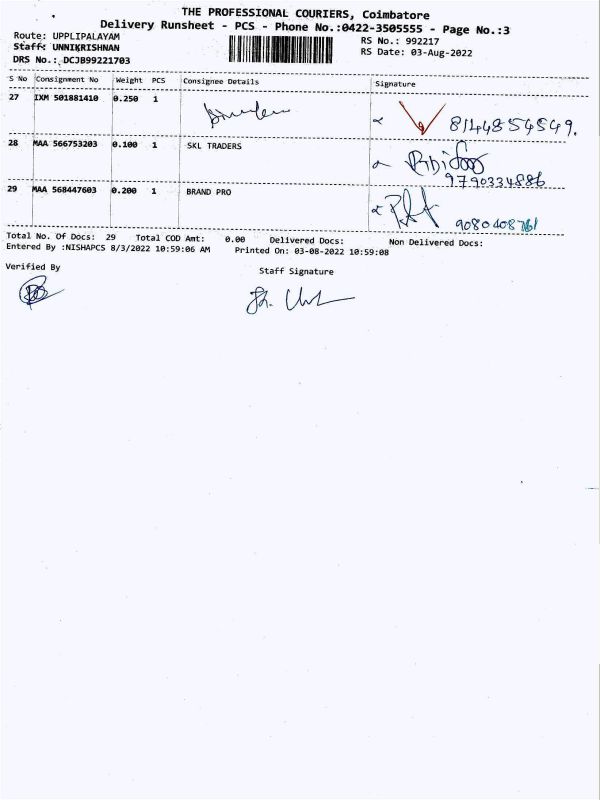 THE PROFESSIONAL COURIERS, Coimbatore
Delivery Runsheet - PCS - Phone No.:0422-3505555 - Page No.:3
Route: UPPLIPALAYAM
RS No.: 992217
Staff: UNNIKRISHNAN
RS Date: 03-Aug-2022
DRS No.: DCJB99221703
S No Consignment No Weight PCS Consignee Details Signature
27 IXM 501881410 0.250 1
8144854549.
28 MAA 566753203 0.100 1 SKL TRADERS
9790334886
29 MAA 568447603 0.200 1 BRAND PRO
9080408761
Total No. Of Docs: 29 Total COD Amt: 0.00 Delivered Docs: Non Delivered Docs:
Entered By :NISHAPCS 8/3/2022 10:59:06 AM Printed On: 03-08-2022 10:59:08
Verified By Staff Signature